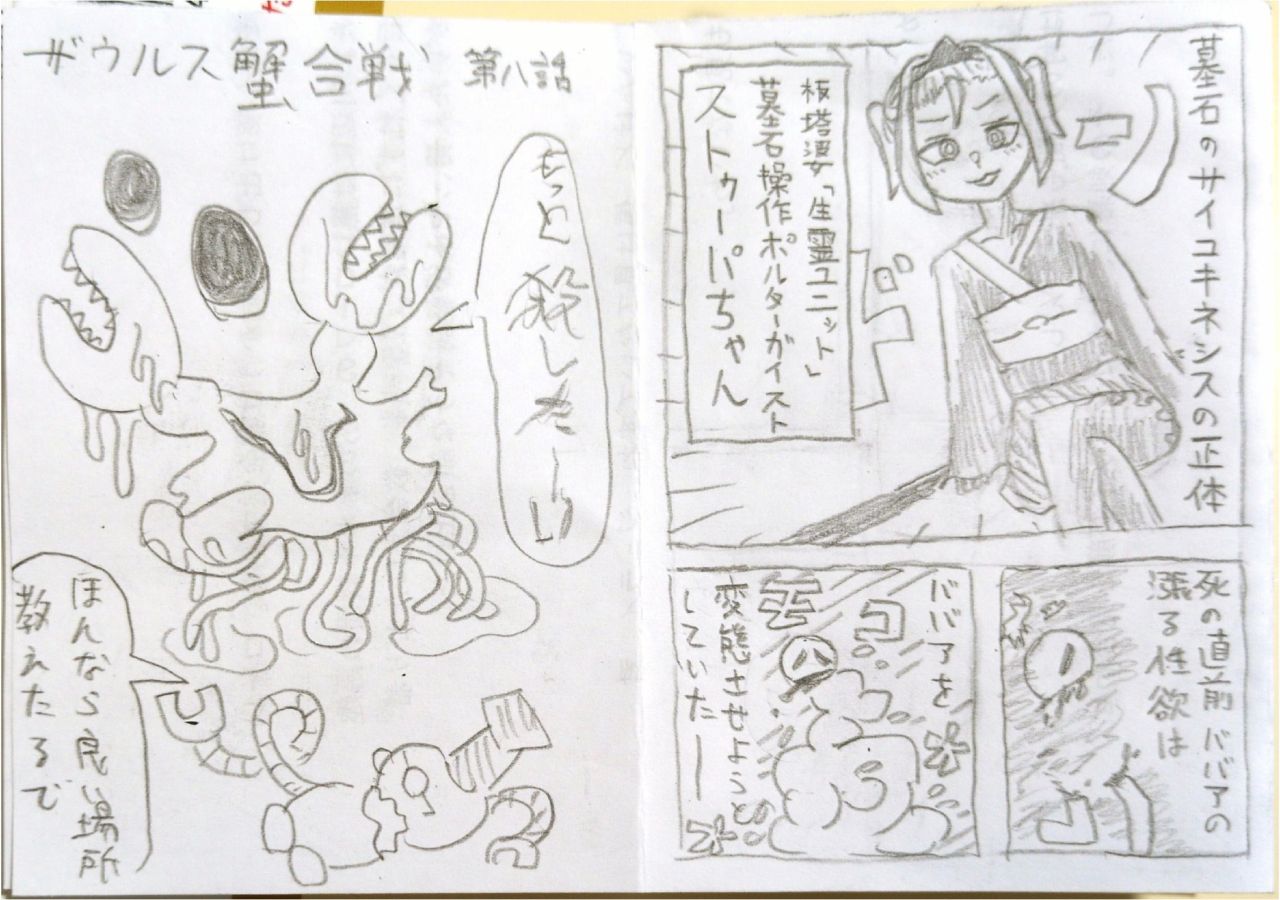 墓石のサイコキネシスの正体
ドーン
板塔婆「生霊ユニット」
墓石操作ポルターガイスト
ストゥーパちゃん
死の直前ババアの
漲る性欲は
ババアを
変態させようと
していたー
ザウルス蟹合戦 第八話
もっと殺したーい
ほんなら良い場所
教えたるで